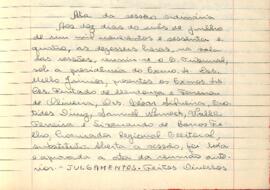 Ata da sessão ordinária
Aos dez dias do mês de junho
de um mil novecentos e sessenta e
quatro, às dezesseis horas, na sala
das sessões, reuniu-se o E. Tribunal,
sob a presidência do Exmo. Sr. Des.
Mello Júnior, presentes os Exmos. Srs.
Des. Furtado de Mendonça e Ferreira
de Oliveira, Drs. Cézar Silveira,
Diniz, Samuel Werneck,
Ferreira e de Barros
lho, Procurador Regional Eleitoral,
substituto. Aberta a sessão, foi lida
e aprovada a ata da reunião ante-
rior. - JULGAMENTOS - Feitos Diversos